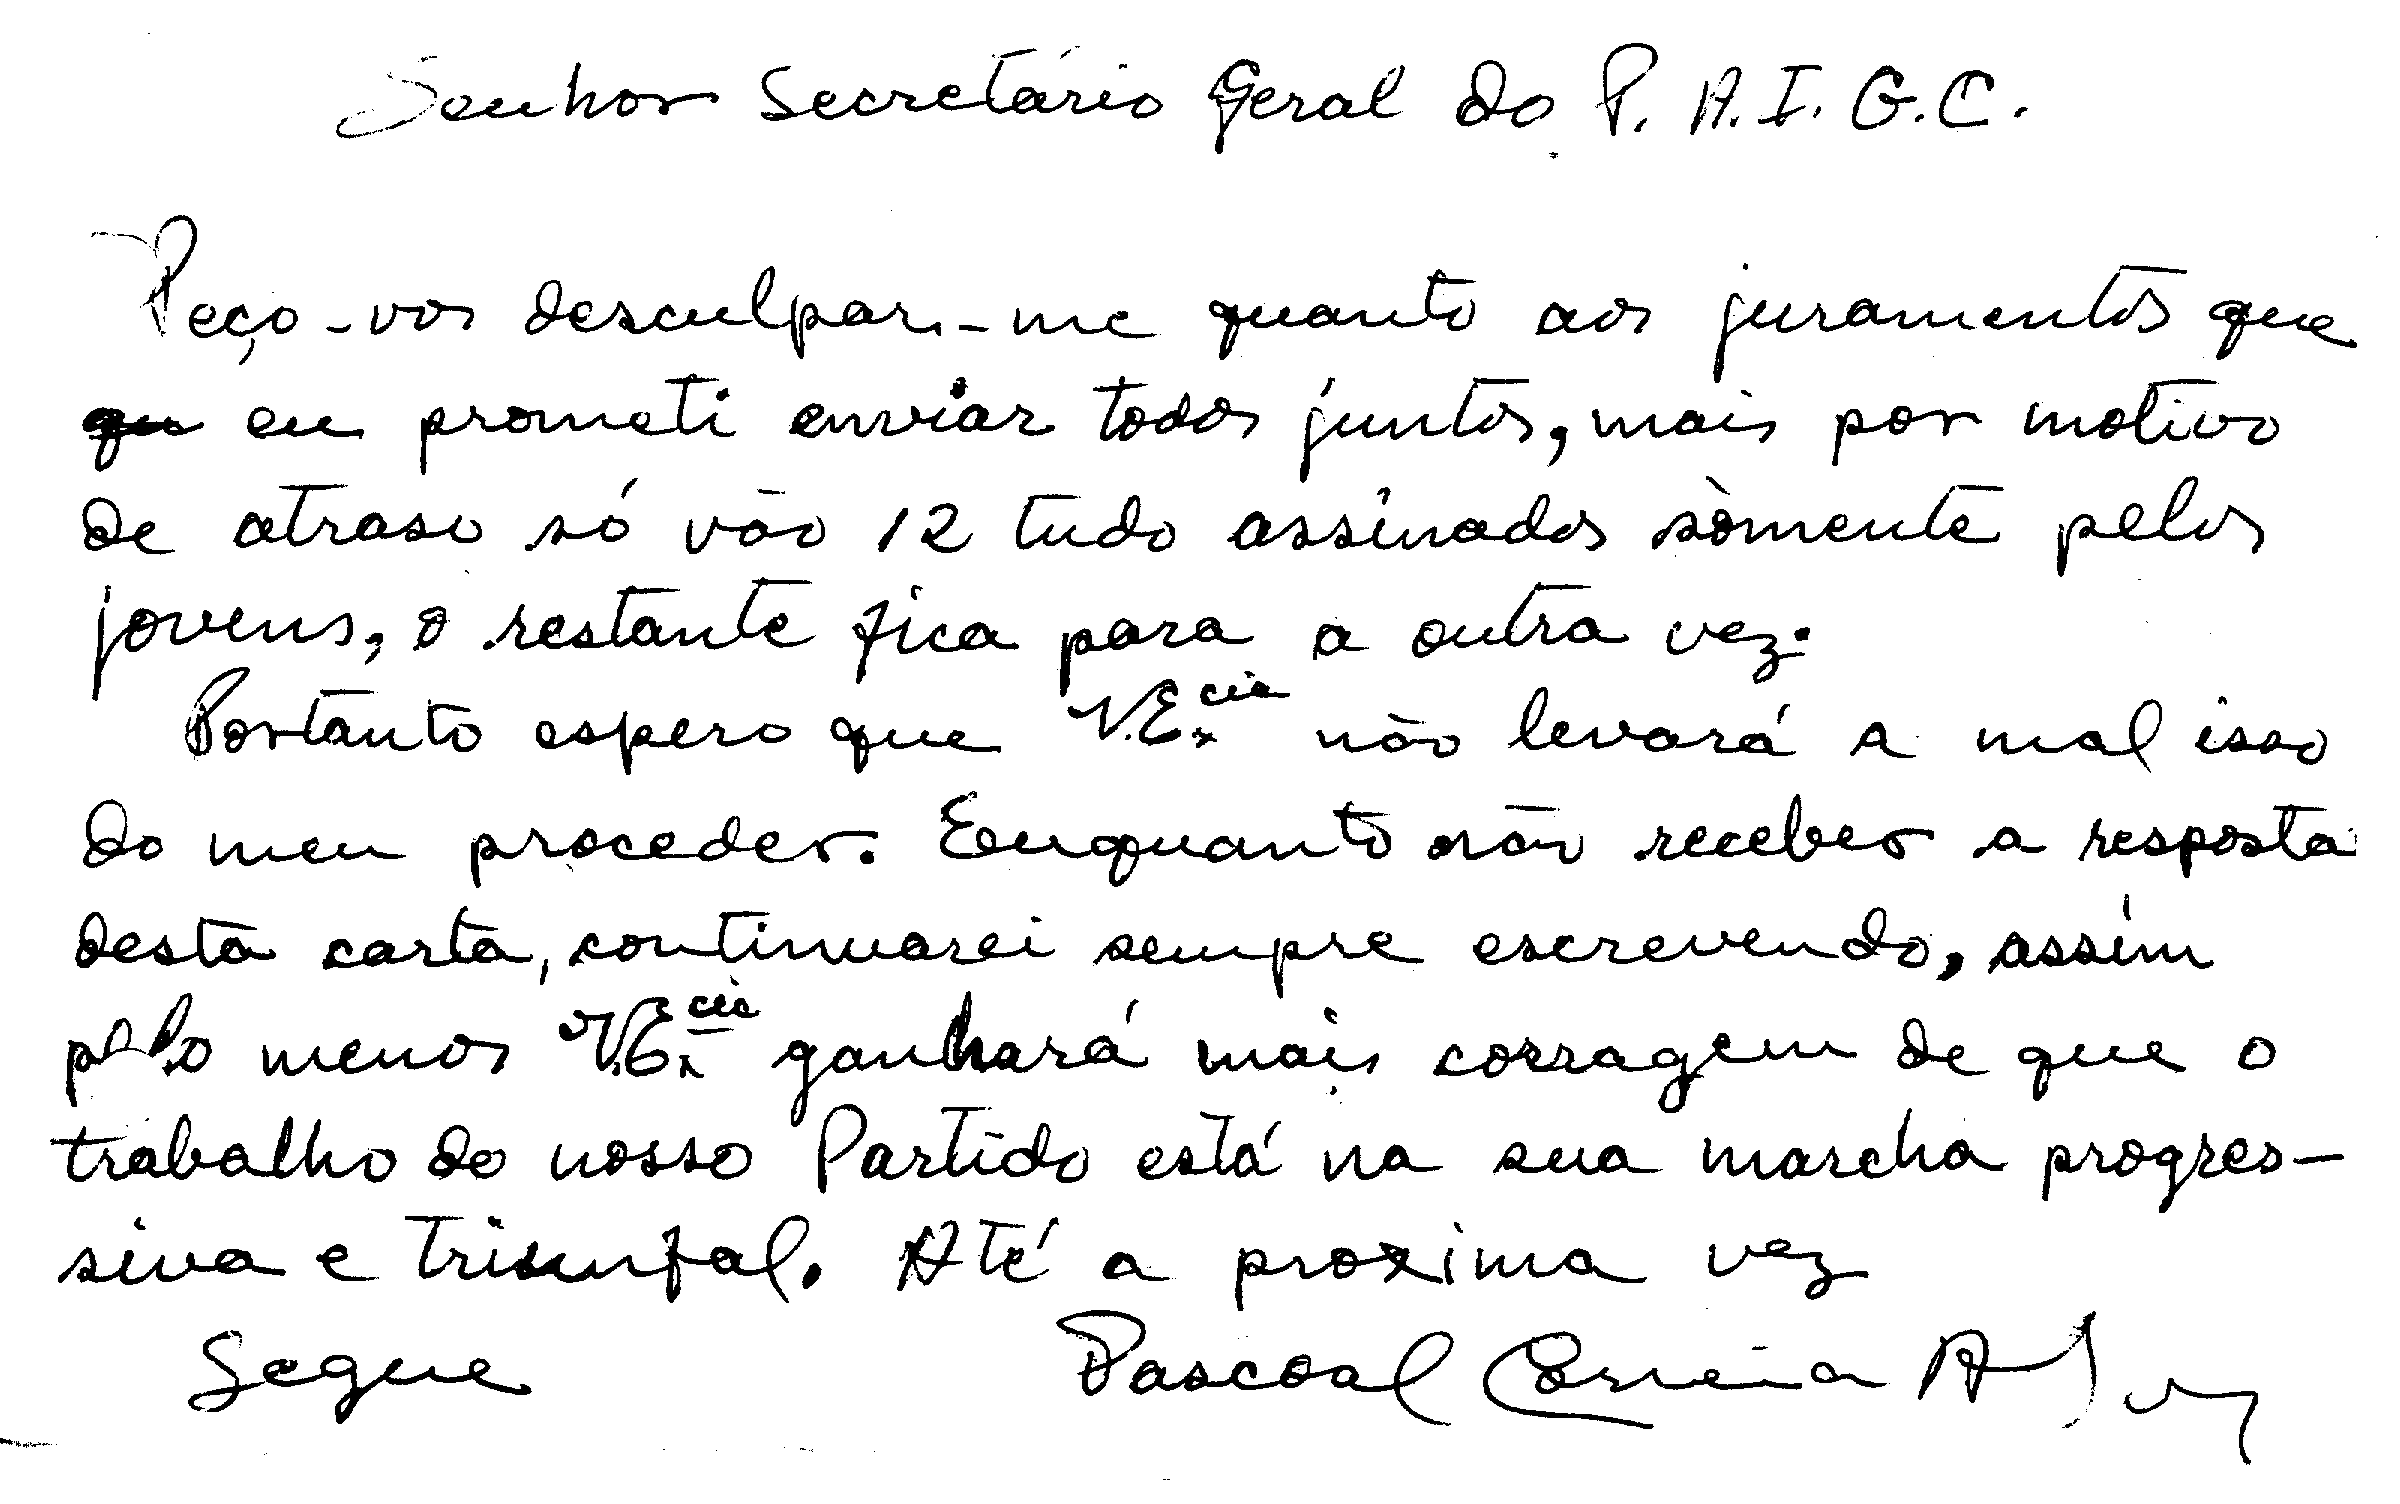 Senhor Secretário Geral do P. A. I. G. C.
Peço-vos desculpar-me quanto aos juramentos que
qu eu prometi enviar todos juntos, mais por motivo
de atraso só vão 12 tudo assinados sòmente pelos
jovens, o restante fica para a outra vez.
Portanto espero que V. Ex.cia não levará a mal isso
do meu proceder. Enquanto não receber a resposta
desta carta, continuarei sempre escrevendo, assím
pelo menos V. Ex.cia ganhará mais corragem de que o
trabalho do nosso Partido está na sua marcha progres-
siva e triunfal. Até a proxima vez
Segue Pascoal Correia